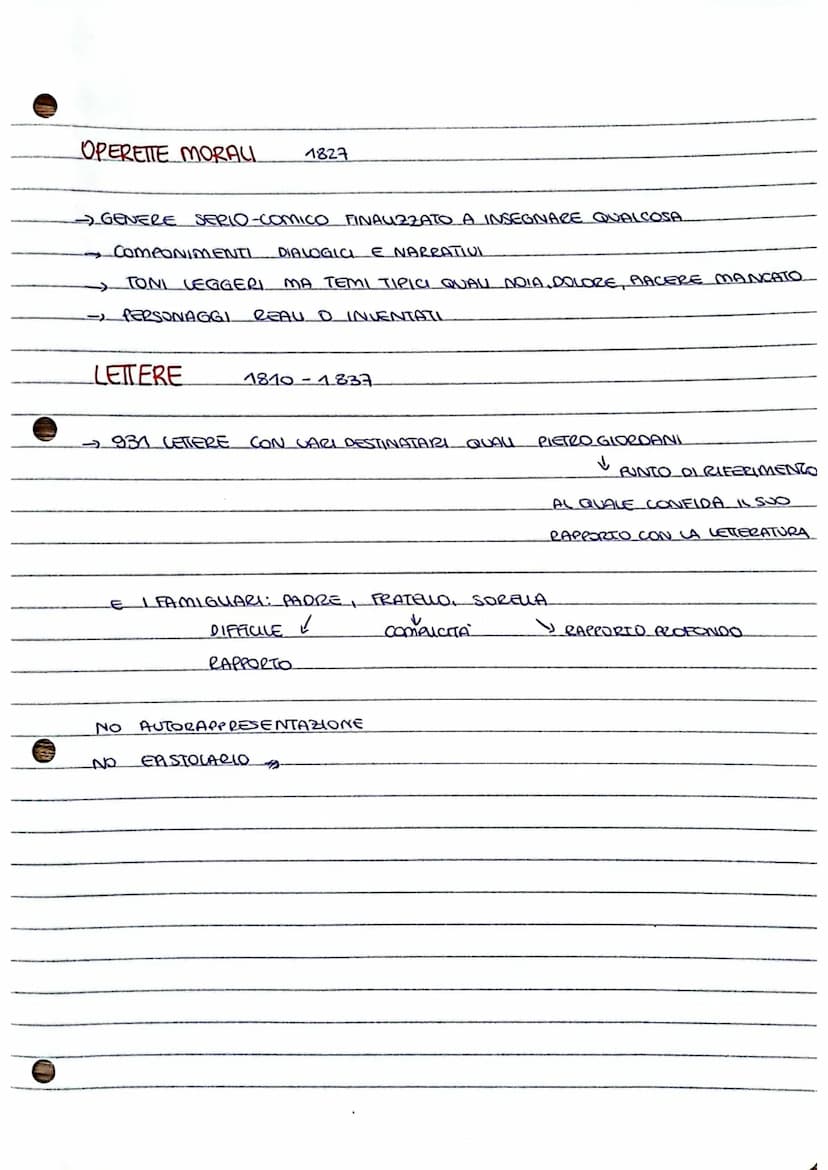 OPERETTE MORALI 1827
→ GENERE SERIO-COMICO FINALIZZATO A INSEGNARE QUALCOSA
→ COMPONIMENTI DIALOGICI E NARRATIVI
→ TONI LEGGERI MA TEMI TIPICI QUALI NOIA, DOLORE, PIACERE MANCATO
→ PERSONAGGI REALI O INVENTATI
LETTERE 1810 - 1837
→ 931 LETTERE CON VARI DESTINATARI QUALI PIETRO GIORDANI
↓ PUNTO DI RIFERIMENTO
AL QUALE CONFIDA IL SUO
RAPPORTO CON LA LETTERATURA
E I FAMIGLIARI: PADRE, FRATELLO, SORELLA
DIFFICILE ↙ ↓ COMPLICITÀ ↘ RAPPORTO PROFONDO
RAPPORTO
NO AUTORAPPRESENTAZIONE
NO EPISTOLARIO →